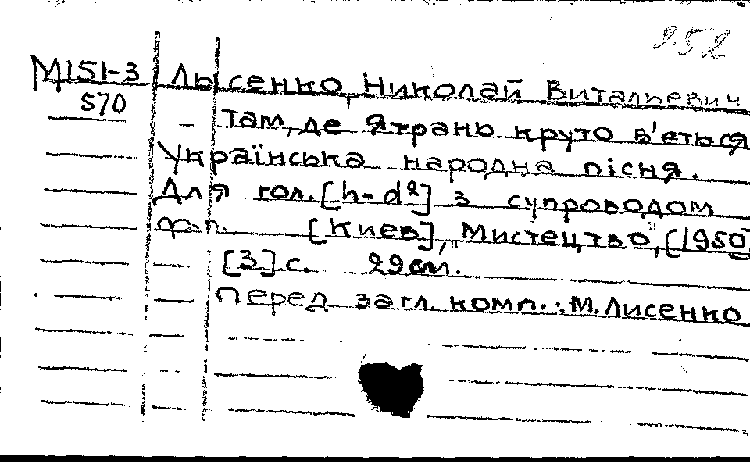 252
М151-3 Лысенко, Николай Витальевич
570
Там, де Ятрань круто в'ється
Українська народна пісня.
Для гол. [h-d²] з супроводом
ф-п. [Киев], "Мистецтво", [1950]
[3] с. 29 см.
Перед загл. комп.: М. Лисенко